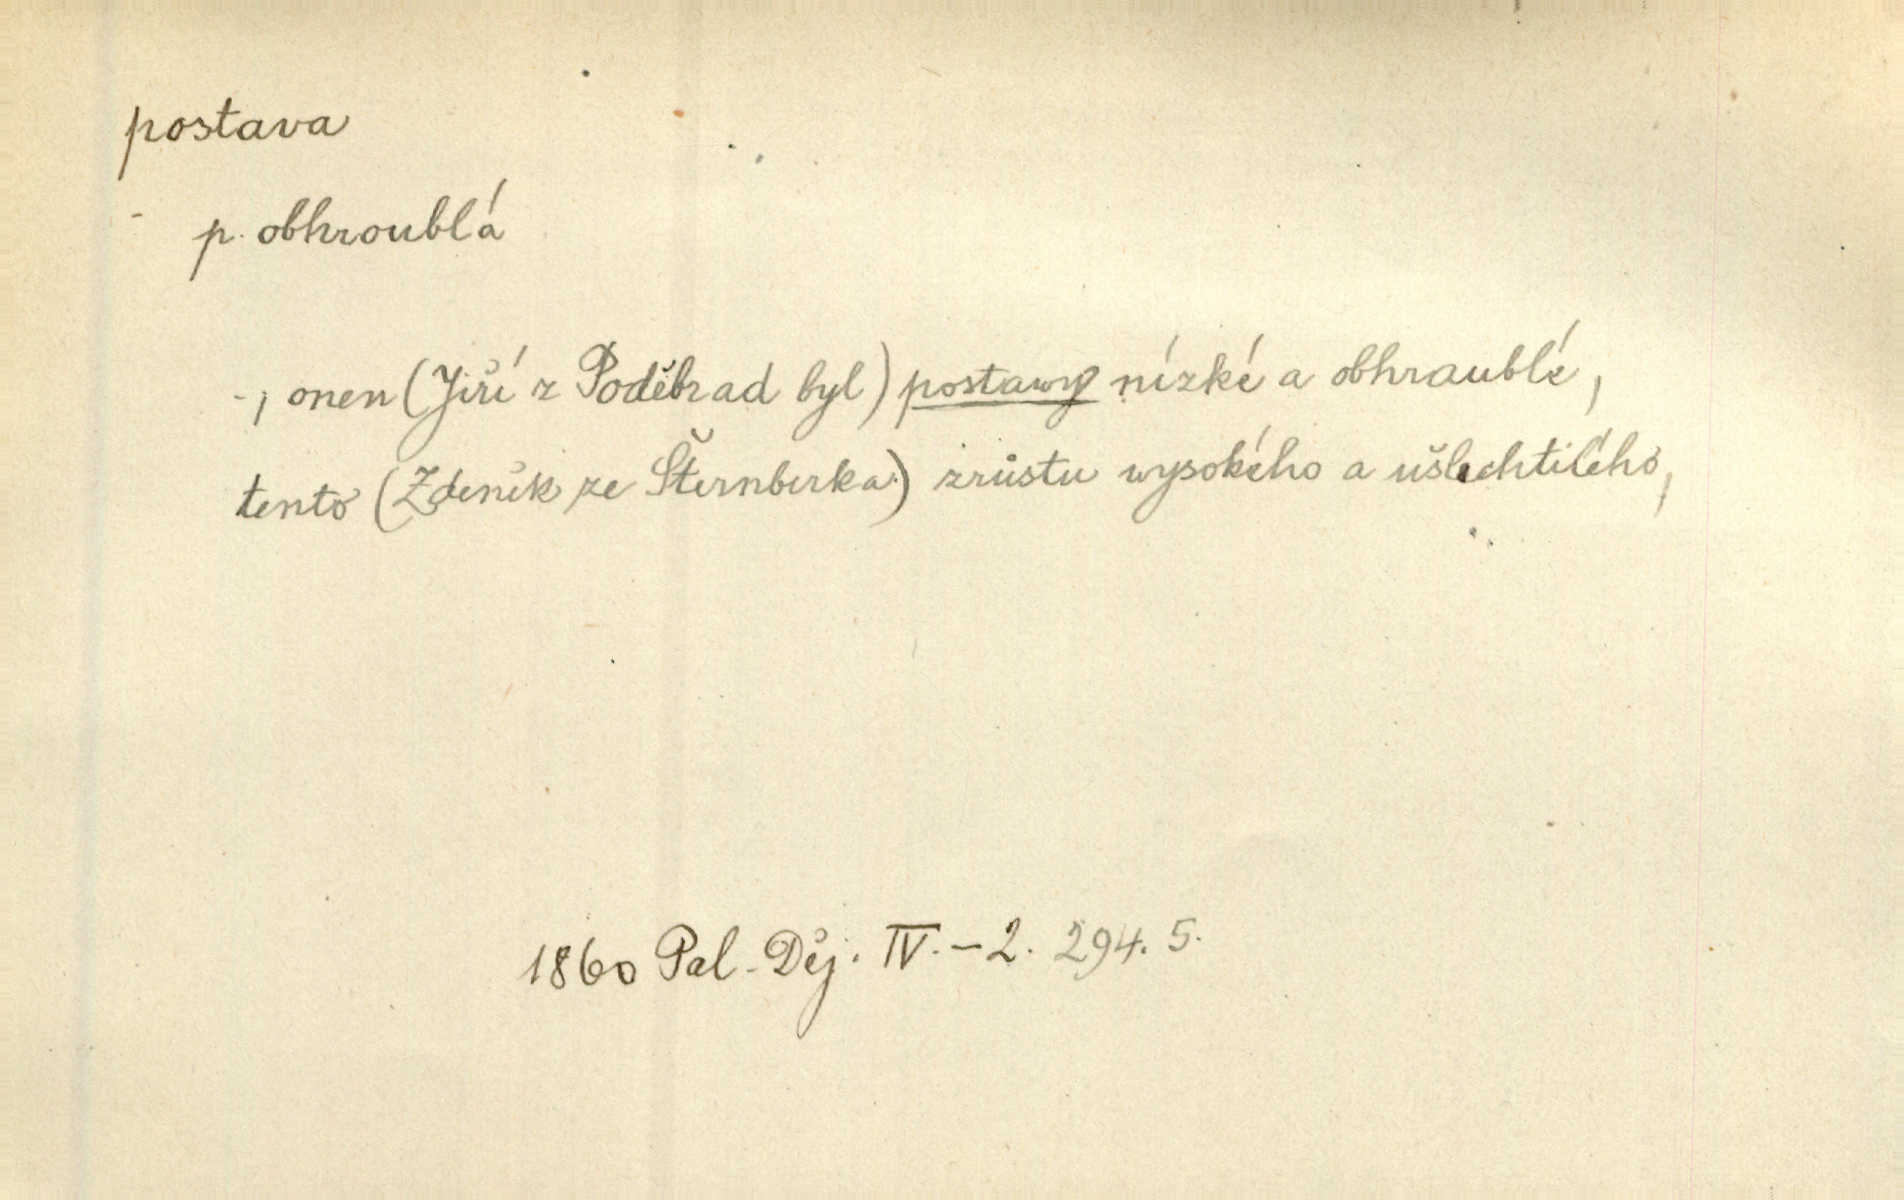 postava
- p. obhroublá
-, onen (Jiří z Poděbrad byl) postawy nízké a obhraublé,
tento (Zdeněk ze Šternberka) zrůstu wysokého a ušlechtilého,
1860 Pal. Děj. IV. - 2. 294. 5.